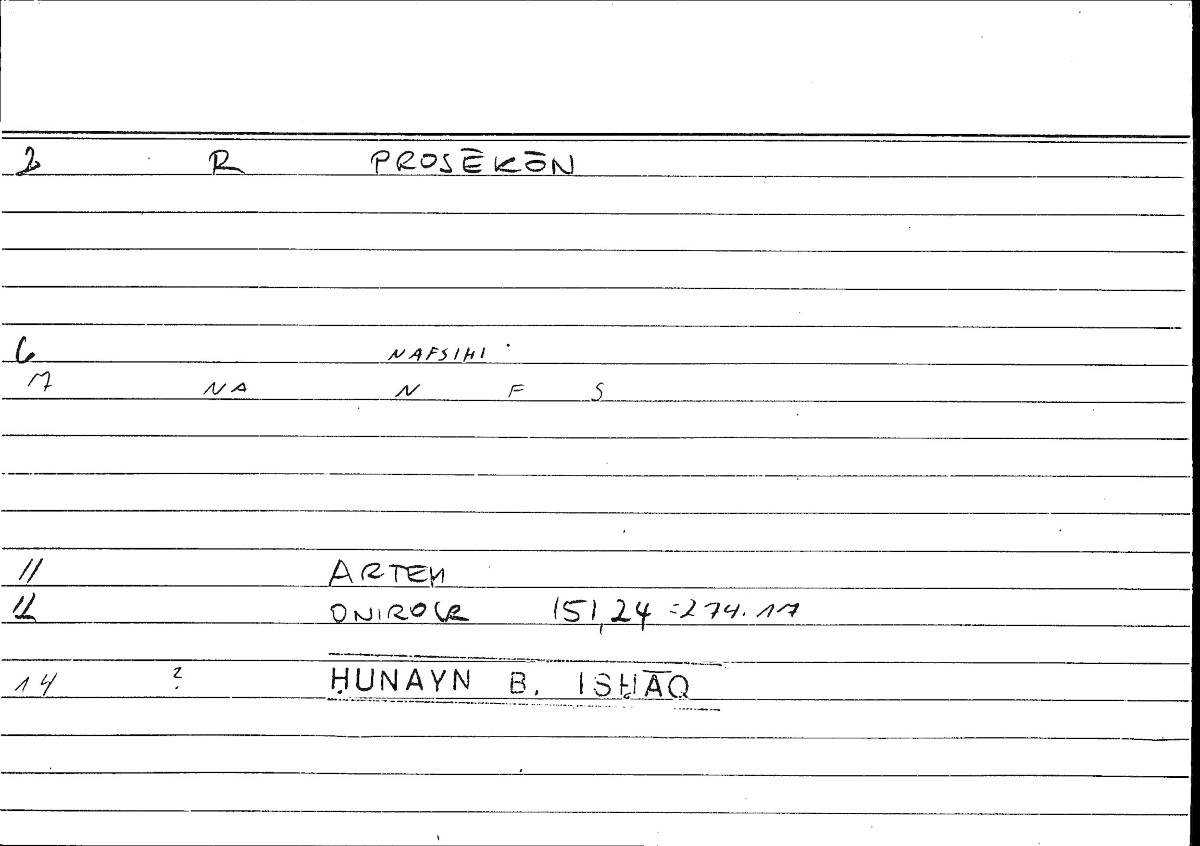 2 R PROSĒKŌN
6 NAFSIHI
7 NA N F S
11 ARTEM
12 ONIROCR 151,24 =274.17
14 ? ḤUNAYN B. ISḤĀQ